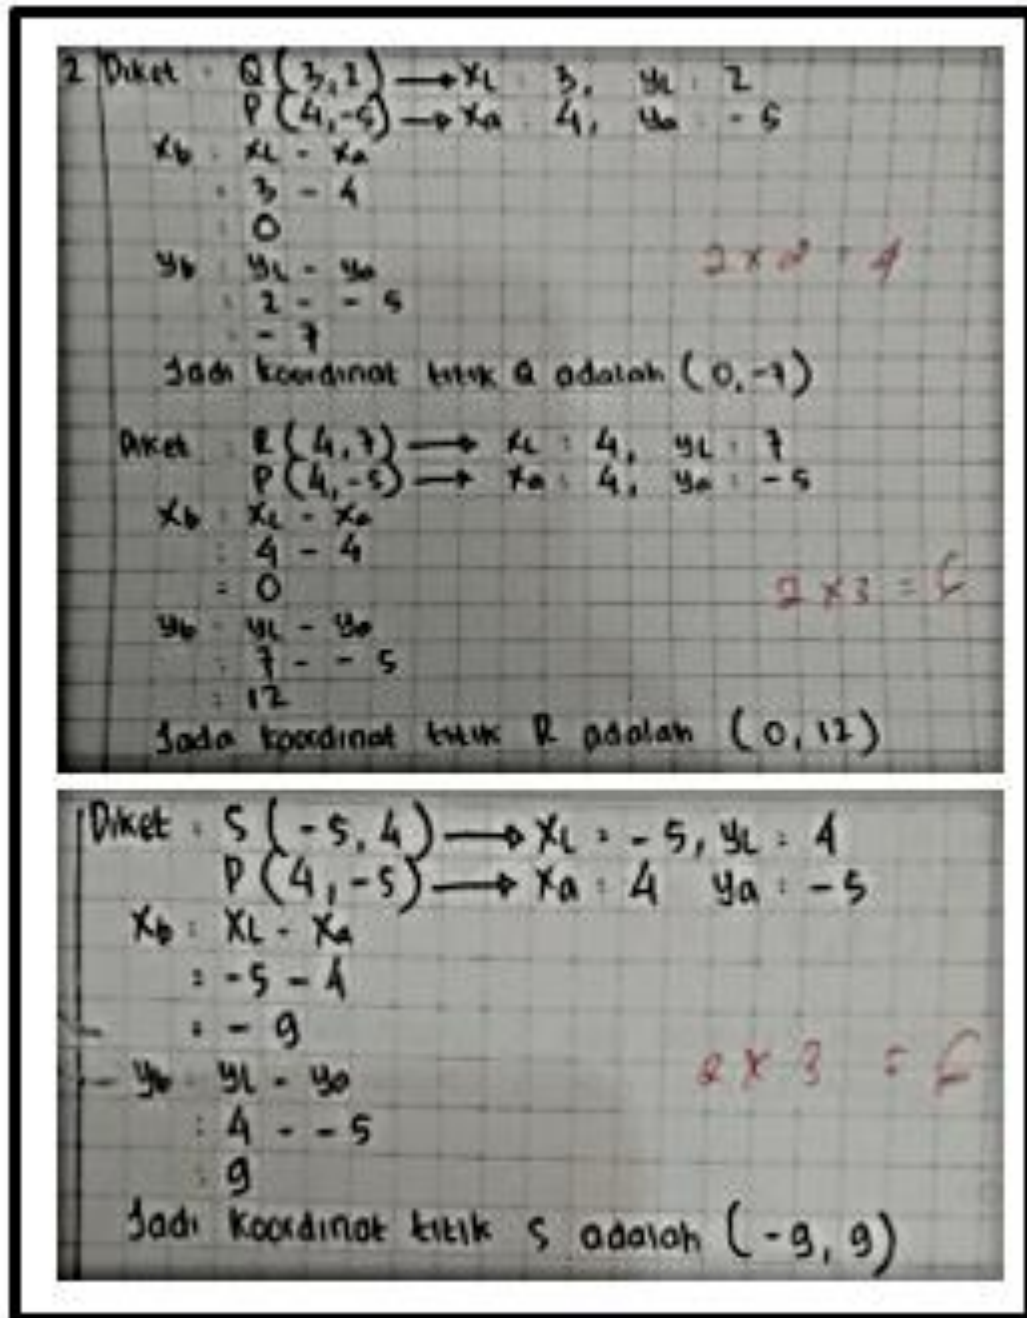 2 Diket : Q (3,2) → xL : 3, yL : 2
P (4,-5) → xa : 4, ya : -5
xb : xL - xa
: 3 - 4
: 0
yb : yL - ya
: 2 - - 5
: - 7
2 x 2 = 4
Jadi koordinat titik Q adalah (0,-7)
Diket : R (4,7) → xL : 4, yL : 7
P (4,-5) → xa : 4, ya : -5
xb : xL - xa
: 4 - 4
= 0
2 x 3 = 6
yb : yL - ya
: 7 - - 5
: 12
Jada koordinat titik R adalah (0,12)
Diket : S (-5,4) → xL = -5, yL : 4
P (4,-5) → xa : 4 ya : -5
xb : xL - xa
: -5 - 4
: - 9
2 x 3 = 6
yb : yL - ya
: 4 - - 5
: 9
Jadi koordinat titik S adalah (-9, 9)